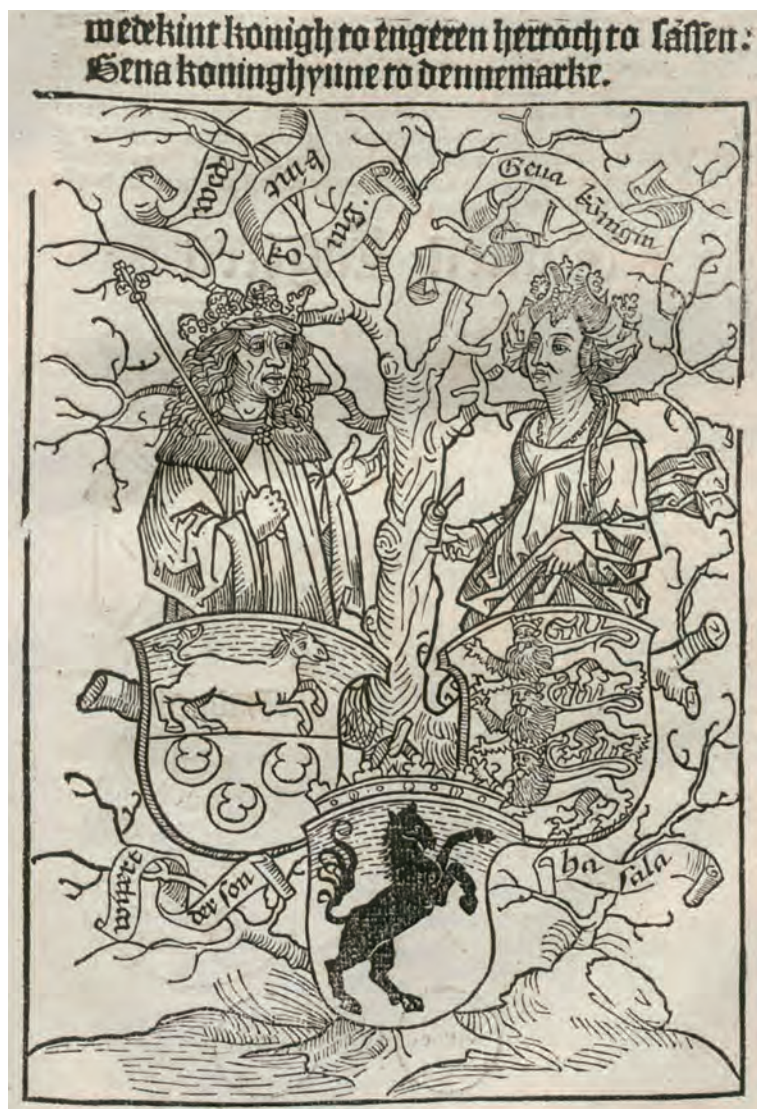 wedekint konigh to engeren hertoch to sassen:
Gena koninghynne to dennemarke.
wede
kint
konig.
Gena Königin
der son